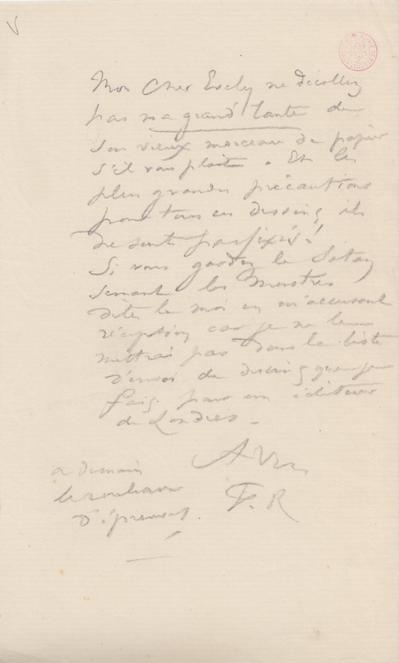 Mon Cher Evely ne décollez
pas ma grand'tante de
son vieux morceau de papier
s'il vous plait. Et les
plus grandes précautions
pour tous ces dessins, ils
ne sont pas fixés!
Si vous gardez le Satan
semant les Monstres
dites le moi en m'accusant
réception car je ne le
mettrai pas dans la liste
d'envoi de dessins que je
fais pour un éditeur
de Londres.
A Vous
F. R
a demain
le rouleau
d'épreuves.